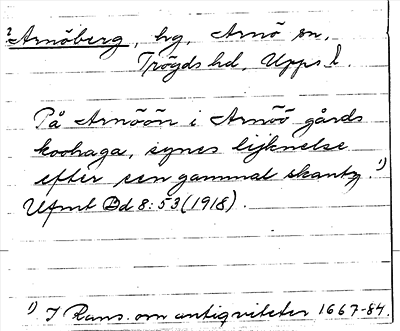 ? Arnöberg, bg, Arnö sn,
Trögds hd, Upps. l.
På Arnöön i Arnöö gårds
koohaga, synes lijknelse
efter een gammal skantz. 1)
Ufmt Bd 8:53 (1918).
1) I Rans. om antiqviteter 1667-84.